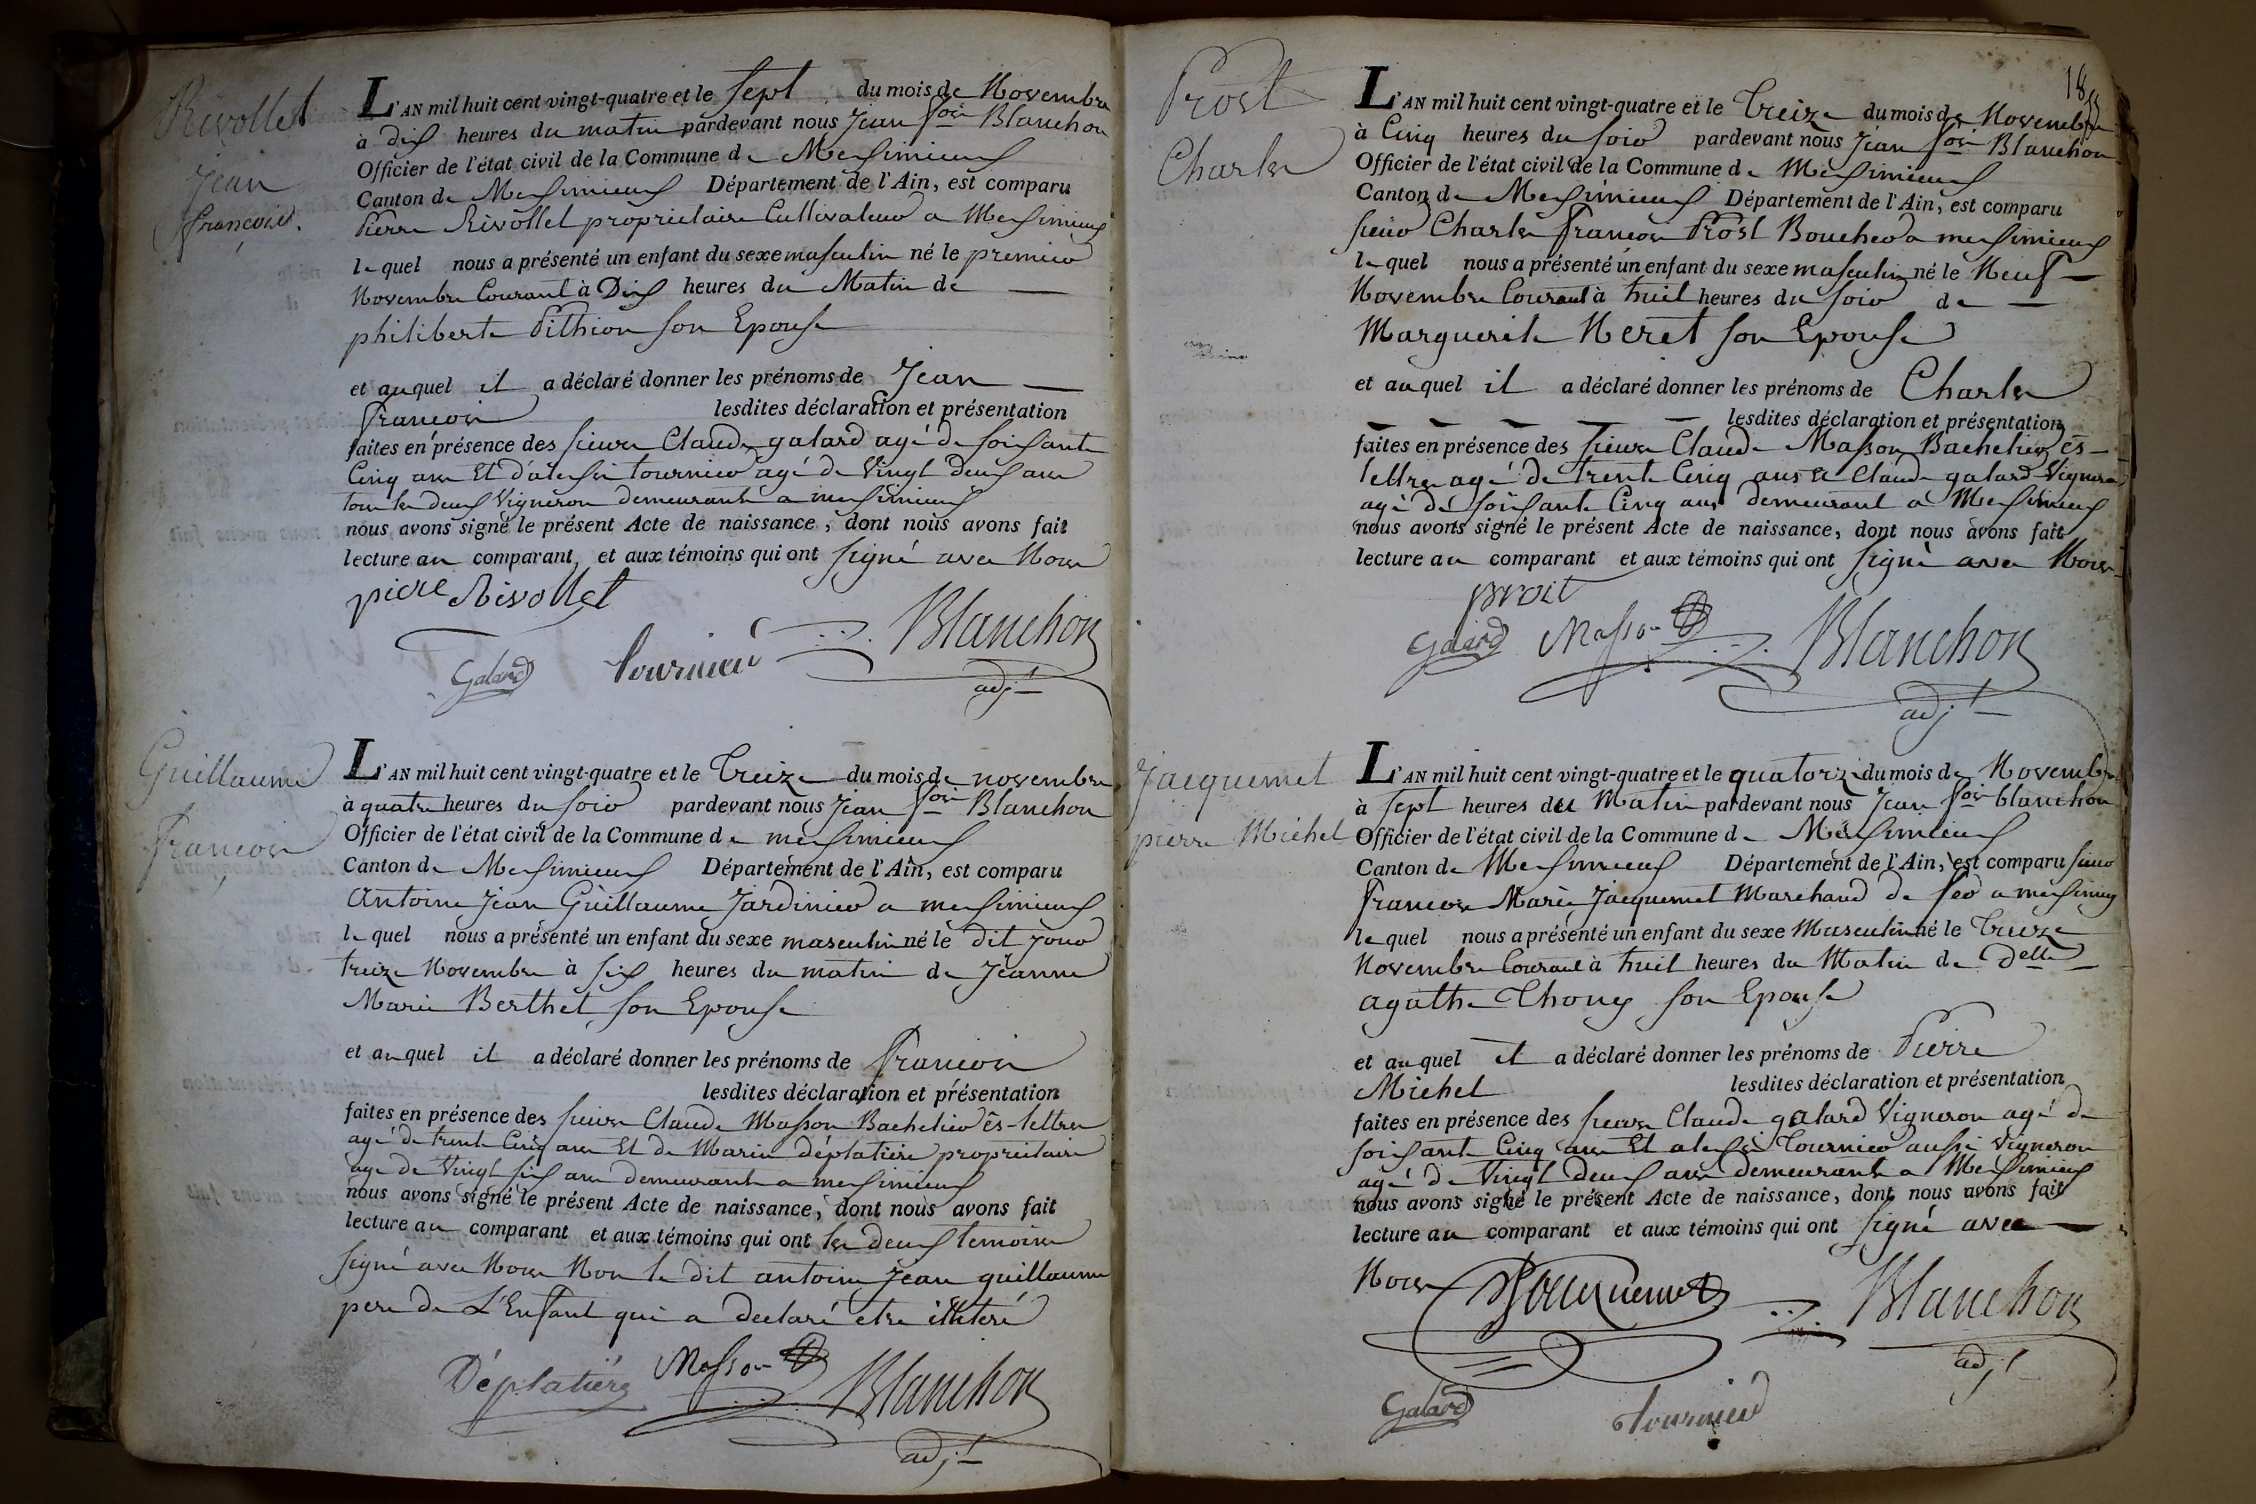 Rivollet
Jean
françois.
L'AN mil huit cent vingt-quatre et le Sept du mois de Novembre
à dix heures du matin pardevant nous Jean fois Blanchon
Officier de l'état civil de la Commune de Meximieux
Canton de Meximieux Département de l'Ain, est comparu
Pierre Rivollet proprietaire Cultivateur a Meximieux
lequel nous a présenté un enfant du sexe masculin né le premier
Novembre Courant à Dix heures du Matin de
philiberte Pithion son Epouse
et auquel il a déclaré donner les prénoms de Jean
francois lesdites déclaration et présentation
faites en présence des sieurs Claude galard agé de soixante
Cinq ans Et d'alexis tournier agé de Vingt deux ans
tous les deux Vigneron demeurants a meximieux
nous avons signé le présent Acte de naissance, dont nous avons fait
lecture au comparant, et aux témoins qui ont signé avec Nous
piere Rivollet
Blanchon
Galard Tournier
adjt
Guillaume
francois
L'AN mil huit cent vingt-quatre et le Treize du mois de novembre
à quatre heures du soir pardevant nous Jean fois Blanchon
Officier de l'état civil de la Commune de meximieux
Canton de Meximieux Département de l'Ain, est comparu
Antoine Jean Guillaume Jardinier a meximieux
lequel nous a présenté un enfant du sexe masculin né le dit jour
treize Novembre à six heures du matin de Jeanne
Marie Berthet son Epouse
et auquel il a déclaré donner les prénoms de francois
lesdites déclaration et présentation
faites en présence des sieurs Claude Masson Bachelier ès-lettres
agé de trente Cinq ans Et de Marin déplatière proprietaire
age de Vingt six ans demeurants a meximieux
nous avons signé le présent Acte de naissance, dont nous avons fait
lecture au comparant et aux témoins qui ont les deux temoins
signé avec Nous Non le dit antoine Jean guillaume
pere de L'Enfant qui a declaré etre illiteré
Déplatière Masson Blanchon
adjt
18
Prost
Charles
L'AN mil huit cent vingt-quatre et le Treize du mois de Novembre
à Cinq heures du soir pardevant nous Jean fois Blanchon
Officier de l'état civil de la Commune de Meximieux
Canton de Meximieux Département de l'Ain, est comparu
sieur Charles francois Prost Boucher a meximieux
lequel nous a présenté un enfant du sexe masculin né le Neuf
Novembre Courant à huit heures du soir de
Marguerite Neret son Epouse
et auquel il a déclaré donner les prénoms de Charles
lesdites déclaration et présentation
faites en présence des sieurs Claude Masson Bachelier ès-
lettres agé de trente Cinq ans et Claude galard Vigneron
agé de soixante Cinq ans demeurant a Meximieux
nous avons signé le présent Acte de naissance, dont nous avons fait
lecture au comparant et aux témoins qui ont signé avec Nous
prost
Galard Masson Blanchon
adjt
Jacquemet
pierre Michel
L'AN mil huit cent vingt-quatre et le quatorze du mois de Novembre
à sept heures du Matin pardevant nous Jean fois blanchon
Officier de l'état civil de la Commune de Meximieux
Canton de Meximieux Département de l'Ain, est comparu sieur
francois Marie Jacquemet Marchand de fer a meximieux
lequel nous a présenté un enfant du sexe Masculin né le Treize
Novembre Courant à huit heures du Matin de Delle
agathe Thony son Epouse
et auquel il a déclaré donner les prénoms de Pierre
Michel lesdites déclaration et présentation
faites en présence des sieurs Claude galard Vigneron agé de
soixante Cinq ans Et alexis Tournier aussi Vigneron
agé de Vingt deux ans demeurants a Meximieux
nous avons signé le présent Acte de naissance, dont nous avons fait
lecture au comparant et aux témoins qui ont signé avec
Nous Jacquemet Blanchon
adjt
Galard Tournier